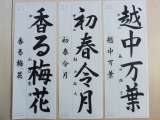 越中万葉
越中万葉
初春令月
初春令月
香る梅花
香る梅花